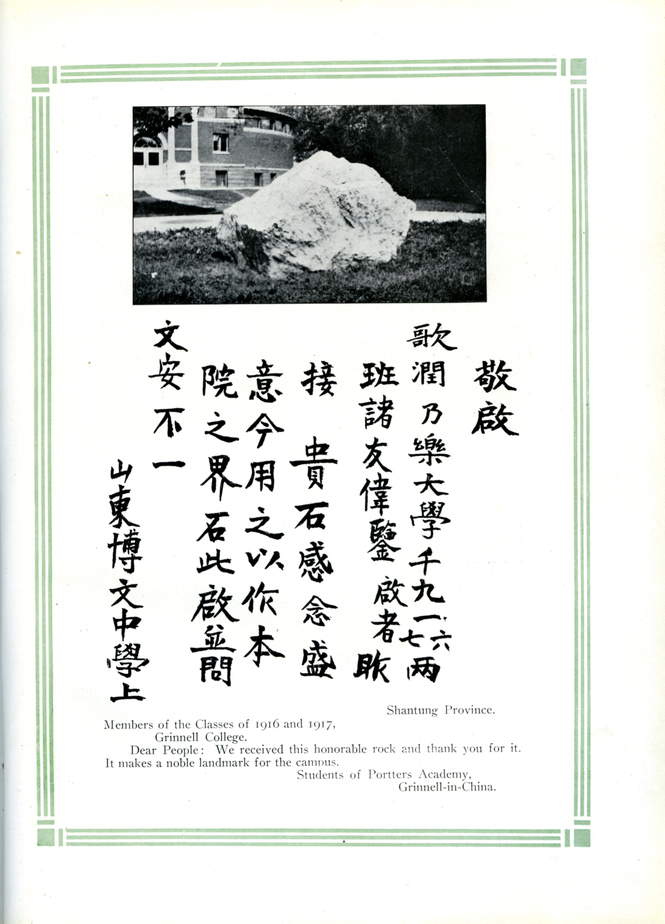 敬啟
歌潤乃樂大學千九一六七兩
班諸友偉鑒 啟者昨
接 貴石感念盛
意今用之以作本
院之界石此啟並問
文安不一
山東博文中學上
Shantung Province.
Members of the Classes of 1916 and 1917,
Grinnell College.
Dear People: We received this honorable rock and thank you for it.
It makes a noble landmark for the campus.
Students of Portters Academy,
Grinnell-in-China.